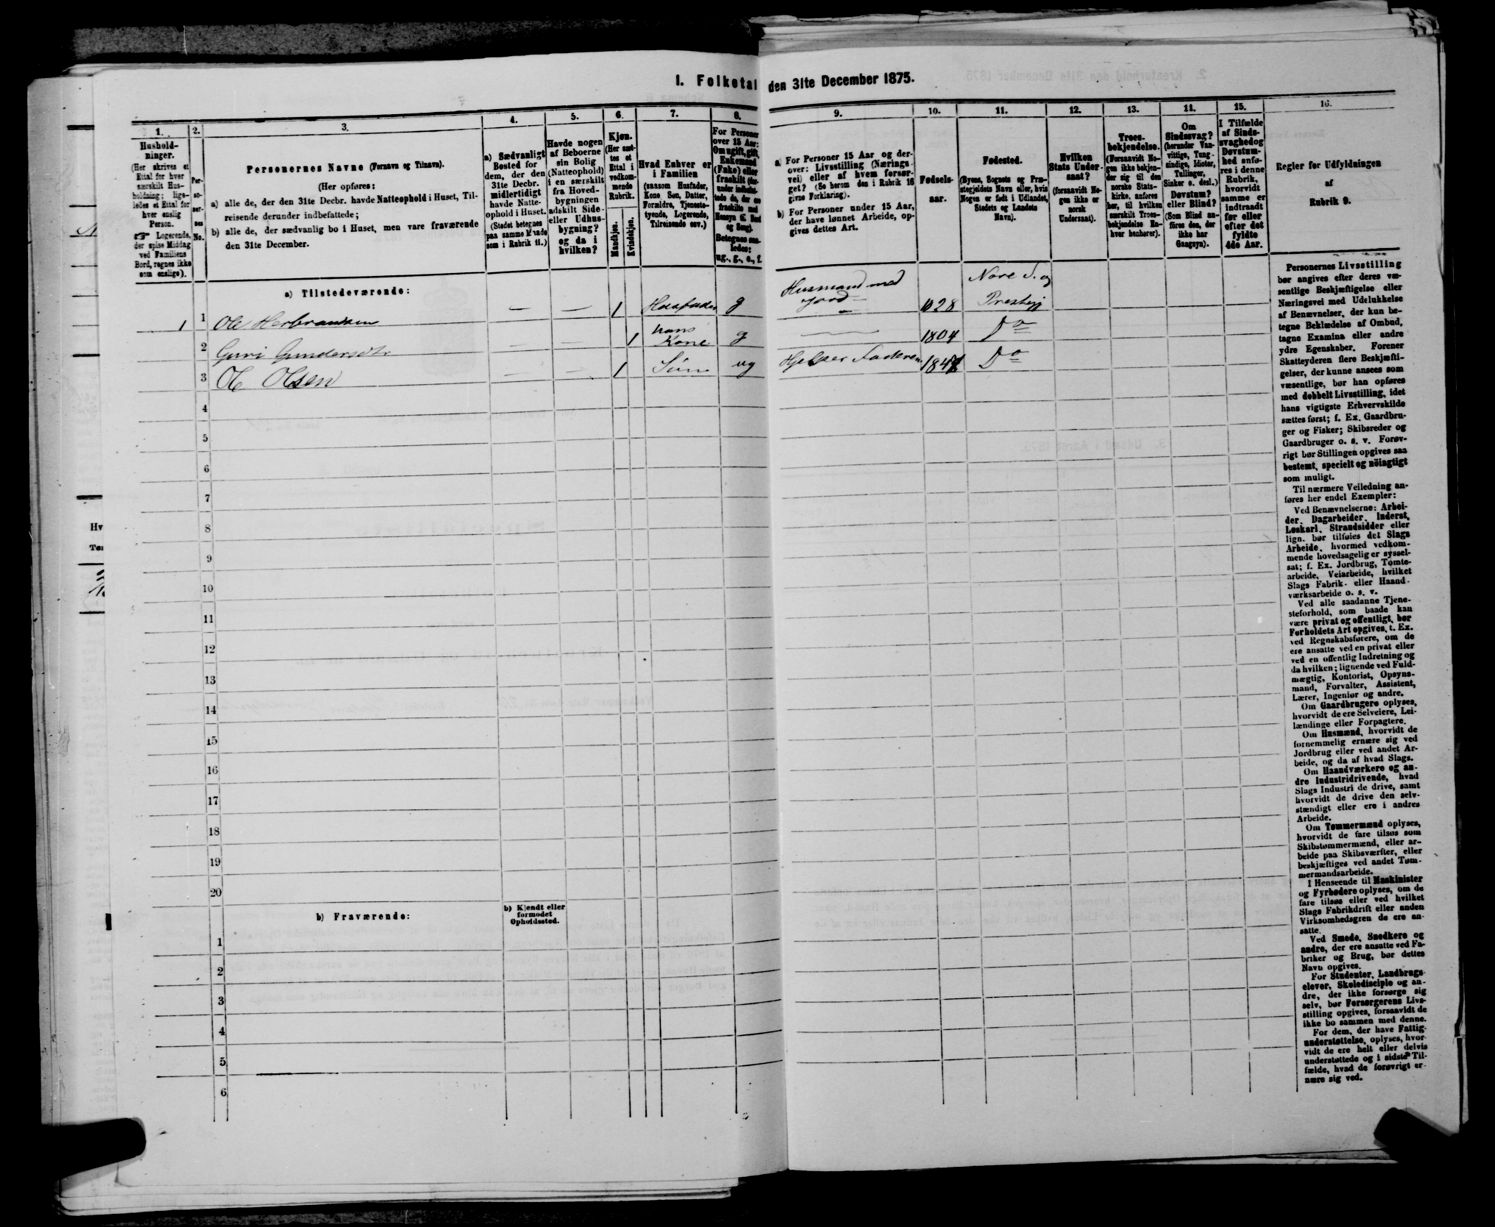 I. Folketal den 31te December 1875.
1.
Hushold-
ninger.
(Her skrives et
Ettal for hver
særskilt Hus-
holdning; lige-
ledes et Ettal for
hver enslig
Person.
☞ Logerende,
der spise Middag
ved Familiens
Bord, regnes ikke
som enslige).
2.
Per-
so-
ner-
nes
No.
3.
Personernes Navne (Fornavn og Tilnavn).
(Her opføres:
a) alle de, der den 31te Decbr. havde Natteophold i Huset, Til-
reisende derunder indbefattede;
b) alle de, der sædvanlig bo i Huset, men vare fraværende
den 31te December.
4.
a) Sædvanligt
Bosted for
dem, der den
31te Decbr.
midlertidigt
havde Natte-
ophold i Huset.
(Stedet betegnes
paa samme Maade
som i Rubrik 11.)
5.
Havde nogen
af Beboerne
sin Bolig
(Natteophold)
i en særskilt
fra Hoved-
bygningen
adskilt Side-
eller Udhus-
bygning?
og da i
hvilken?
6.
Kjøn.
(Her sæt-
tes et
Ettal i
vedkom-
mende
Rubrik.
Mandkjøn.
Kvindekjøn.
7.
Hvad Enhver er
i Familien
(saasom Husfader,
Kone, Søn, Datter,
Forældre, Tjeneste-
tyende, Logerende,
Tilreisende osv.)
8.
For Personer
over 15 Aar:
Om ugift, gift,
Enkemand
(Enke) eller
fraskilt
ug., g., e., f.
9.
a) For Personer 15 Aar og der-
over: Livsstilling (Nærings-
vei) eller af hvem forsør-
get? (Se herom den i Rubrik 16
givne Forklaring).
b) For Personer under 15 Aar,
der have lønnet Arbeide, op-
gives dettes Art.
10.
Fødsels-
aar.
11.
Fødested.
(Byens, Sognets og Præ-
stegjeldets Navn eller, hvis
Nogen er født i Udlandet,
Stedets og Landets
Navn).
12.
Hvilken
Stats Under-
saat?
(forsaavidt No-
gen ikke er
norsk
Undersaat).
13.
Troes-
bekjendelse.
(Forsaavidt No-
gen ikke bekjen-
der sig til den
norske Stats-
kirke, anføres
her, til hvilken
særskilt Troes-
bekjendelse En-
hver henhører).
14.
Om
Sindssvag?
(herunder Van-
vittige, Tung-
sindige, Idioter,
Tullinger,
Sinker o. desl.)
Døvstum?
eller Blind?
(Som Blind an-
føres den, der
ikke har
Gangsyn).
15.
I Tilfælde
af Sinds-
svaghed og
Døvstum-
hed anfø-
res i denne
Rubrik,
hvorvidt
samme er
indtraadt
før eller
efter det
fyldte
4de Aar.
16.
Regler for Udfyldningen
af
Rubrik 9.
a) Tilstedeværende:
1 1 Ole Herbrandsen — — 1 Husfader g Husmand med Jord 1828 Nore S. og Prestegj
2 Guri Gundersdtr — 1 hans Kone g — 1804 Do
3 Ole Olsen — — 1 Søn ug Hjelper Faderen 184 Do
4
5
6
7
8
9
10
11
12
13
14
15
16
17
18
19
20
b) Fraværende:
b) Kjendt eller
formodet
Opholdssted.
1
2
3
4
5
6
Personernes Livsstilling
bør angives efter deres væ-
sentlige Beskjæftigelse eller
Næringsvei med Udelukkelse
af Benævnelser, der kun be-
tegne Beklædelse af Ombud,
tagne Examina eller andre
ydre Egenskaber. Forener
Skatteyderen flere Beskjæfti-
gelser, der kunne ansees som
væsentlige, bør han opføres
med dobbelt Livsstilling, idet
hans vigtigste Erhvervskilde
sættes først; f. Ex. Gaardbru-
ger og Fisker; Skibsreder og
Gaardbruger o. s. v. Forøv-
rigt bør Stillingen opgives saa
bestemt, specielt og nøiagtigt
som muligt.
Til nærmere Veiledning an-
føres her endel Exempler:
Ved Benævnelserne: Arbei-
der, Dagarbeider, Inderst,
Løskarl, Strandsidder eller
lign. bør tilføies det Slags
Arbeide, hvormed vedkom-
mende hovedsagelig er syssel-
sat; f. Ex. Jordbrug, Tomte-
arbeide, Veiarbeide, hvilket
Slags Fabrik- eller Haand-
værksarbeide o. s. v.
Ved alle saadanne Tjene-
steforhold, som baade kan
være privat og offentligt, bør
Forholdets Art opgives, t. Ex.
ved Regnskabsførere, om de
ere ansatte ved en privat eller
ved en offentlig Indretning og
da hvilken; lignende ved Fuld-
mægtig, Kontorist, Opsyns-
mand, Forvalter, Assistent,
Lærer, Ingeniør og andre.
Om Gaardbrugere oplyses,
hvorvidt de ere Selveiere, Lei-
lændinge eller Forpagtere.
Om Husmænd, hvorvidt de
fornemmelig ernære sig ved
Jordbrug eller ved andet Ar-
beide, og da af hvad Slags.
Om Haandværkere og an-
dre Industridrivende, hvad
Slags Industri de drive, samt
hvorvidt de drive den selv-
stændigt eller ere i andres
Arbeide.
Om Tømmermænd oplyses,
hvorvidt de fare tilsøs som
Skibstømmermænd, eller ar-
beide paa Skibsværfter, eller
beskjæftiges ved andet Tøm-
mermandsarbeide.
I Henseende til Maskinister
og Fyrbødere oplyses, om de
fare tilsøs eller ved hvilket
Slags Fabrikdrift eller anden
Virksomhedsgren de ere an-
satte.
Ved Smede, Snedkere og
andre, der ere ansatte ved Fa-
briker og Brug, bør dettes
Navn opgives.
For Studenter, Landbrugs-
elever, Skoledisciple og an-
dre, der ikke forsørge sig
selv, bør Forsørgerens Livs-
stilling opgives, forsaavidt de
ikke bo sammen med denne.
For dem, der have Fattig-
understøttelse, oplyses, hvor-
vidt de ere helt eller delvis
understøttede og i sidste Til-
fælde, hvad de forøvrigt er-
nære sig ved.